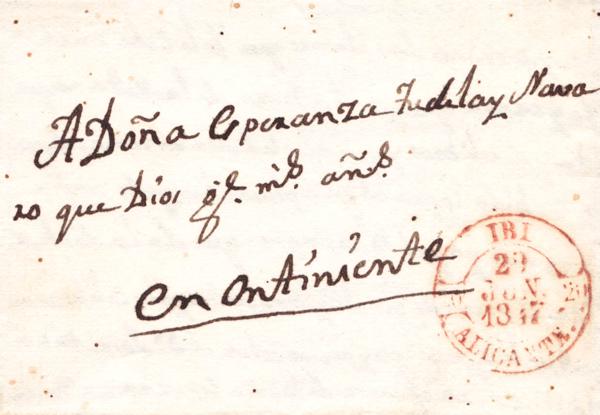 A Doña Esperanza Tudela y Nava
ro que Dios g.e m.s añ.s
en ontiniente
IBI
29
JUN.
1847
ALICANTE.